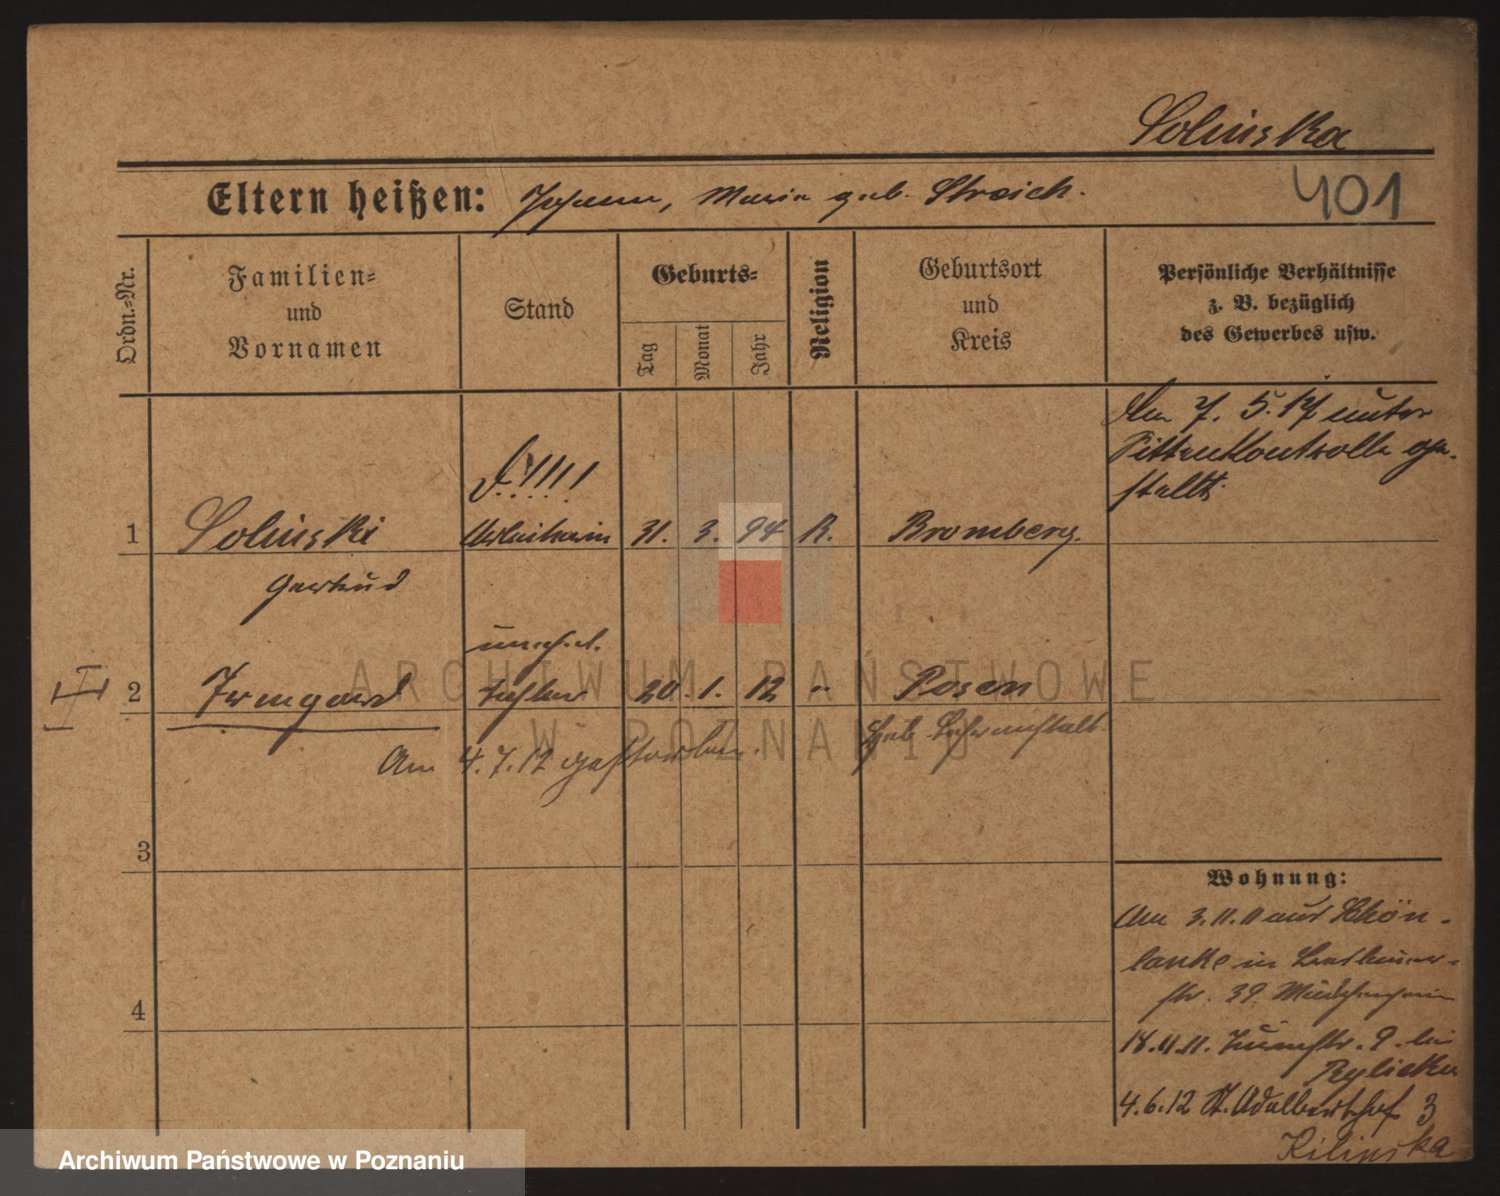 Solinska
Eltern heißen: Johann, Maria geb. Streich.
401
Ordn.-Nr.
Familien-
und
Vornamen
Stand
Geburts-
Tag
Monat
Jahr
Religion
Geburtsort
und
Kreis
Persönliche Verhältnisse
z. B. bezüglich
des Gewerbes usw.
Am 7. 5. 17 unter
Sittenkontrolle ge-
stellt.
!!!!
1 Solinski Arbeiterin 31. 3. 94 R. Bromberg.
Gertrud
unehel.
II 2 Irmgard Tochter 20. 1. 12 " Posen
Heb. Lehranstalt
Am 4.7.12 gestorben.
3
4
Wohnung:
Am 3.11.11 aus Schön-
lanke in
str. 39
18.11.11. 9. bei
Rylicka
4.6.12 St. Adalberthof 3
Kilinska
ARCHIWUM PAŃSTWOWE
W POZNANIU
Archiwum Państwowe w Poznaniu